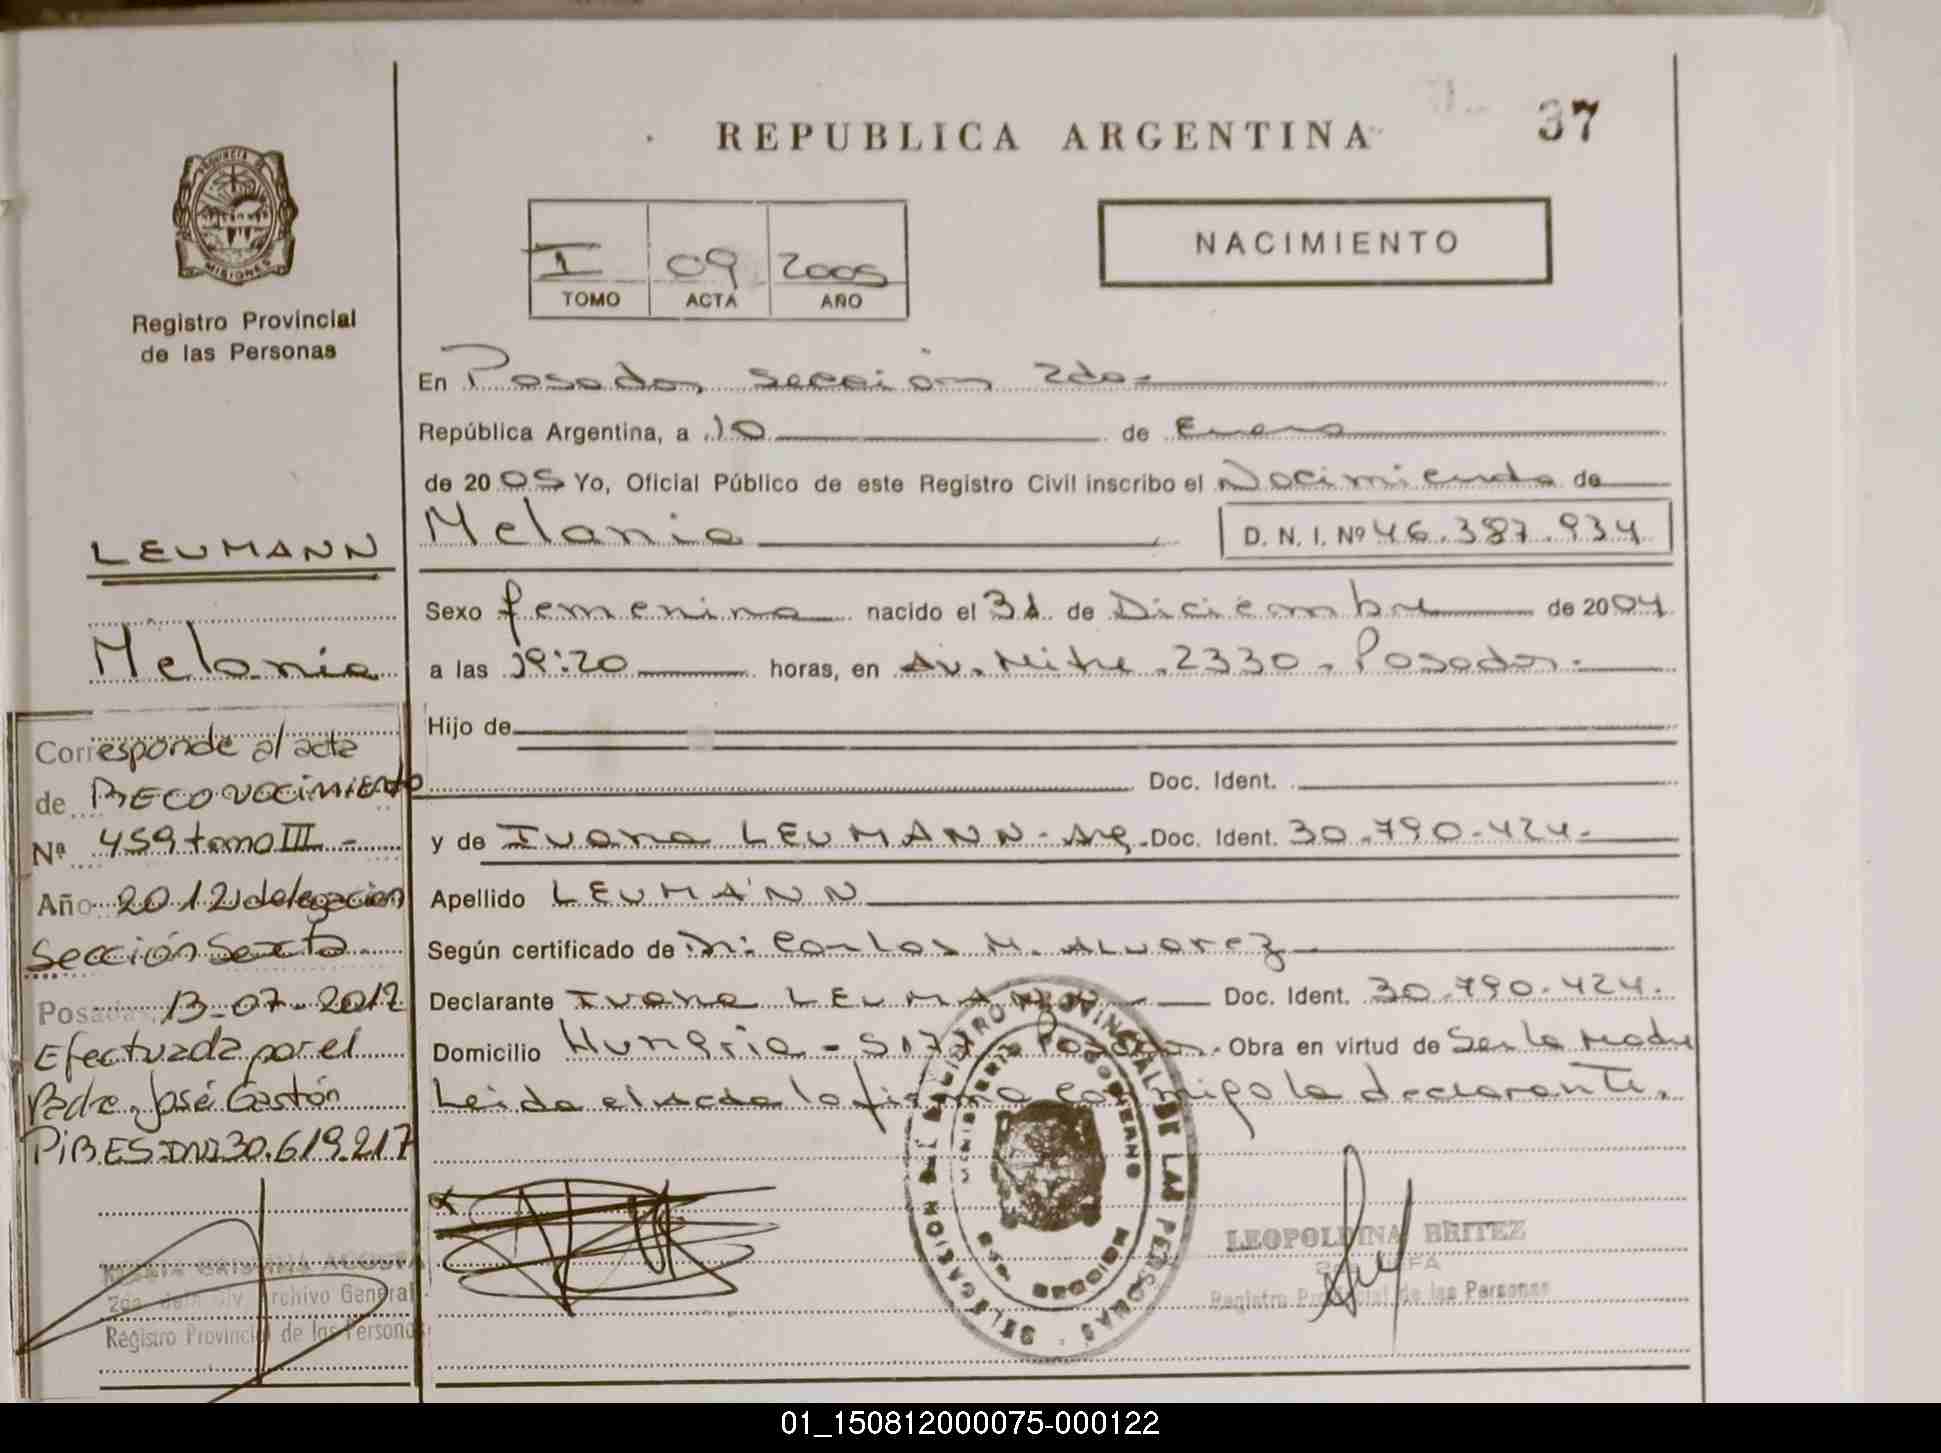 37
REPUBLICA ARGENTINA
PROVINCIA DE
MISIONES
Registro Provincial
de las Personas
I 09 2005
TOMO ACTA AÑO
NACIMIENTO
En Posadas, sección 2da-
República Argentina, a 10 de Enero
de 2005 Yo, Oficial Público de este Registro Civil inscribo el Nacimiento de
Melania D. N. I. Nº 46.387.934
Sexo femenino nacido el 31 de Diciembre de 2004
a las 19:20 horas, en Av. Mitre 2330 - Posadas.
Hijo de
Doc. Ident.
y de Ivana LEUMANN - Arg. Doc. Ident. 30.790.424-
Apellido LEUMANN
Según certificado de Dr. Carlos M. Alvarez
Declarante Ivana LEUMANN Doc. Ident. 30.790.424.
Domicilio Hungria - 5177 Posadas. Obra en virtud de Ser la Madre
Leida el Acta la firma conmigo la declarante.
LEUMANN
Melania
Corresponde al acta
de RECONOCIMIENTO
Nº 459 tomo III -
Año 2012 delegación
Sección Sexta
Posadas 13-07-2012
Efectuada por el
Padre, José Gastón
PIRES DNI 30.619.217
ACOSTA
Archivo General
Registro Provincial de las Personas
DELEGACION DEL REGISTRO PROVINCIAL DE LAS PERSONAS
MINISTERIO DE GOBIERNO
LEOPOLDINA BRITEZ
2da JEFA
Registro Provincial de las Personas
01_150812000075-000122